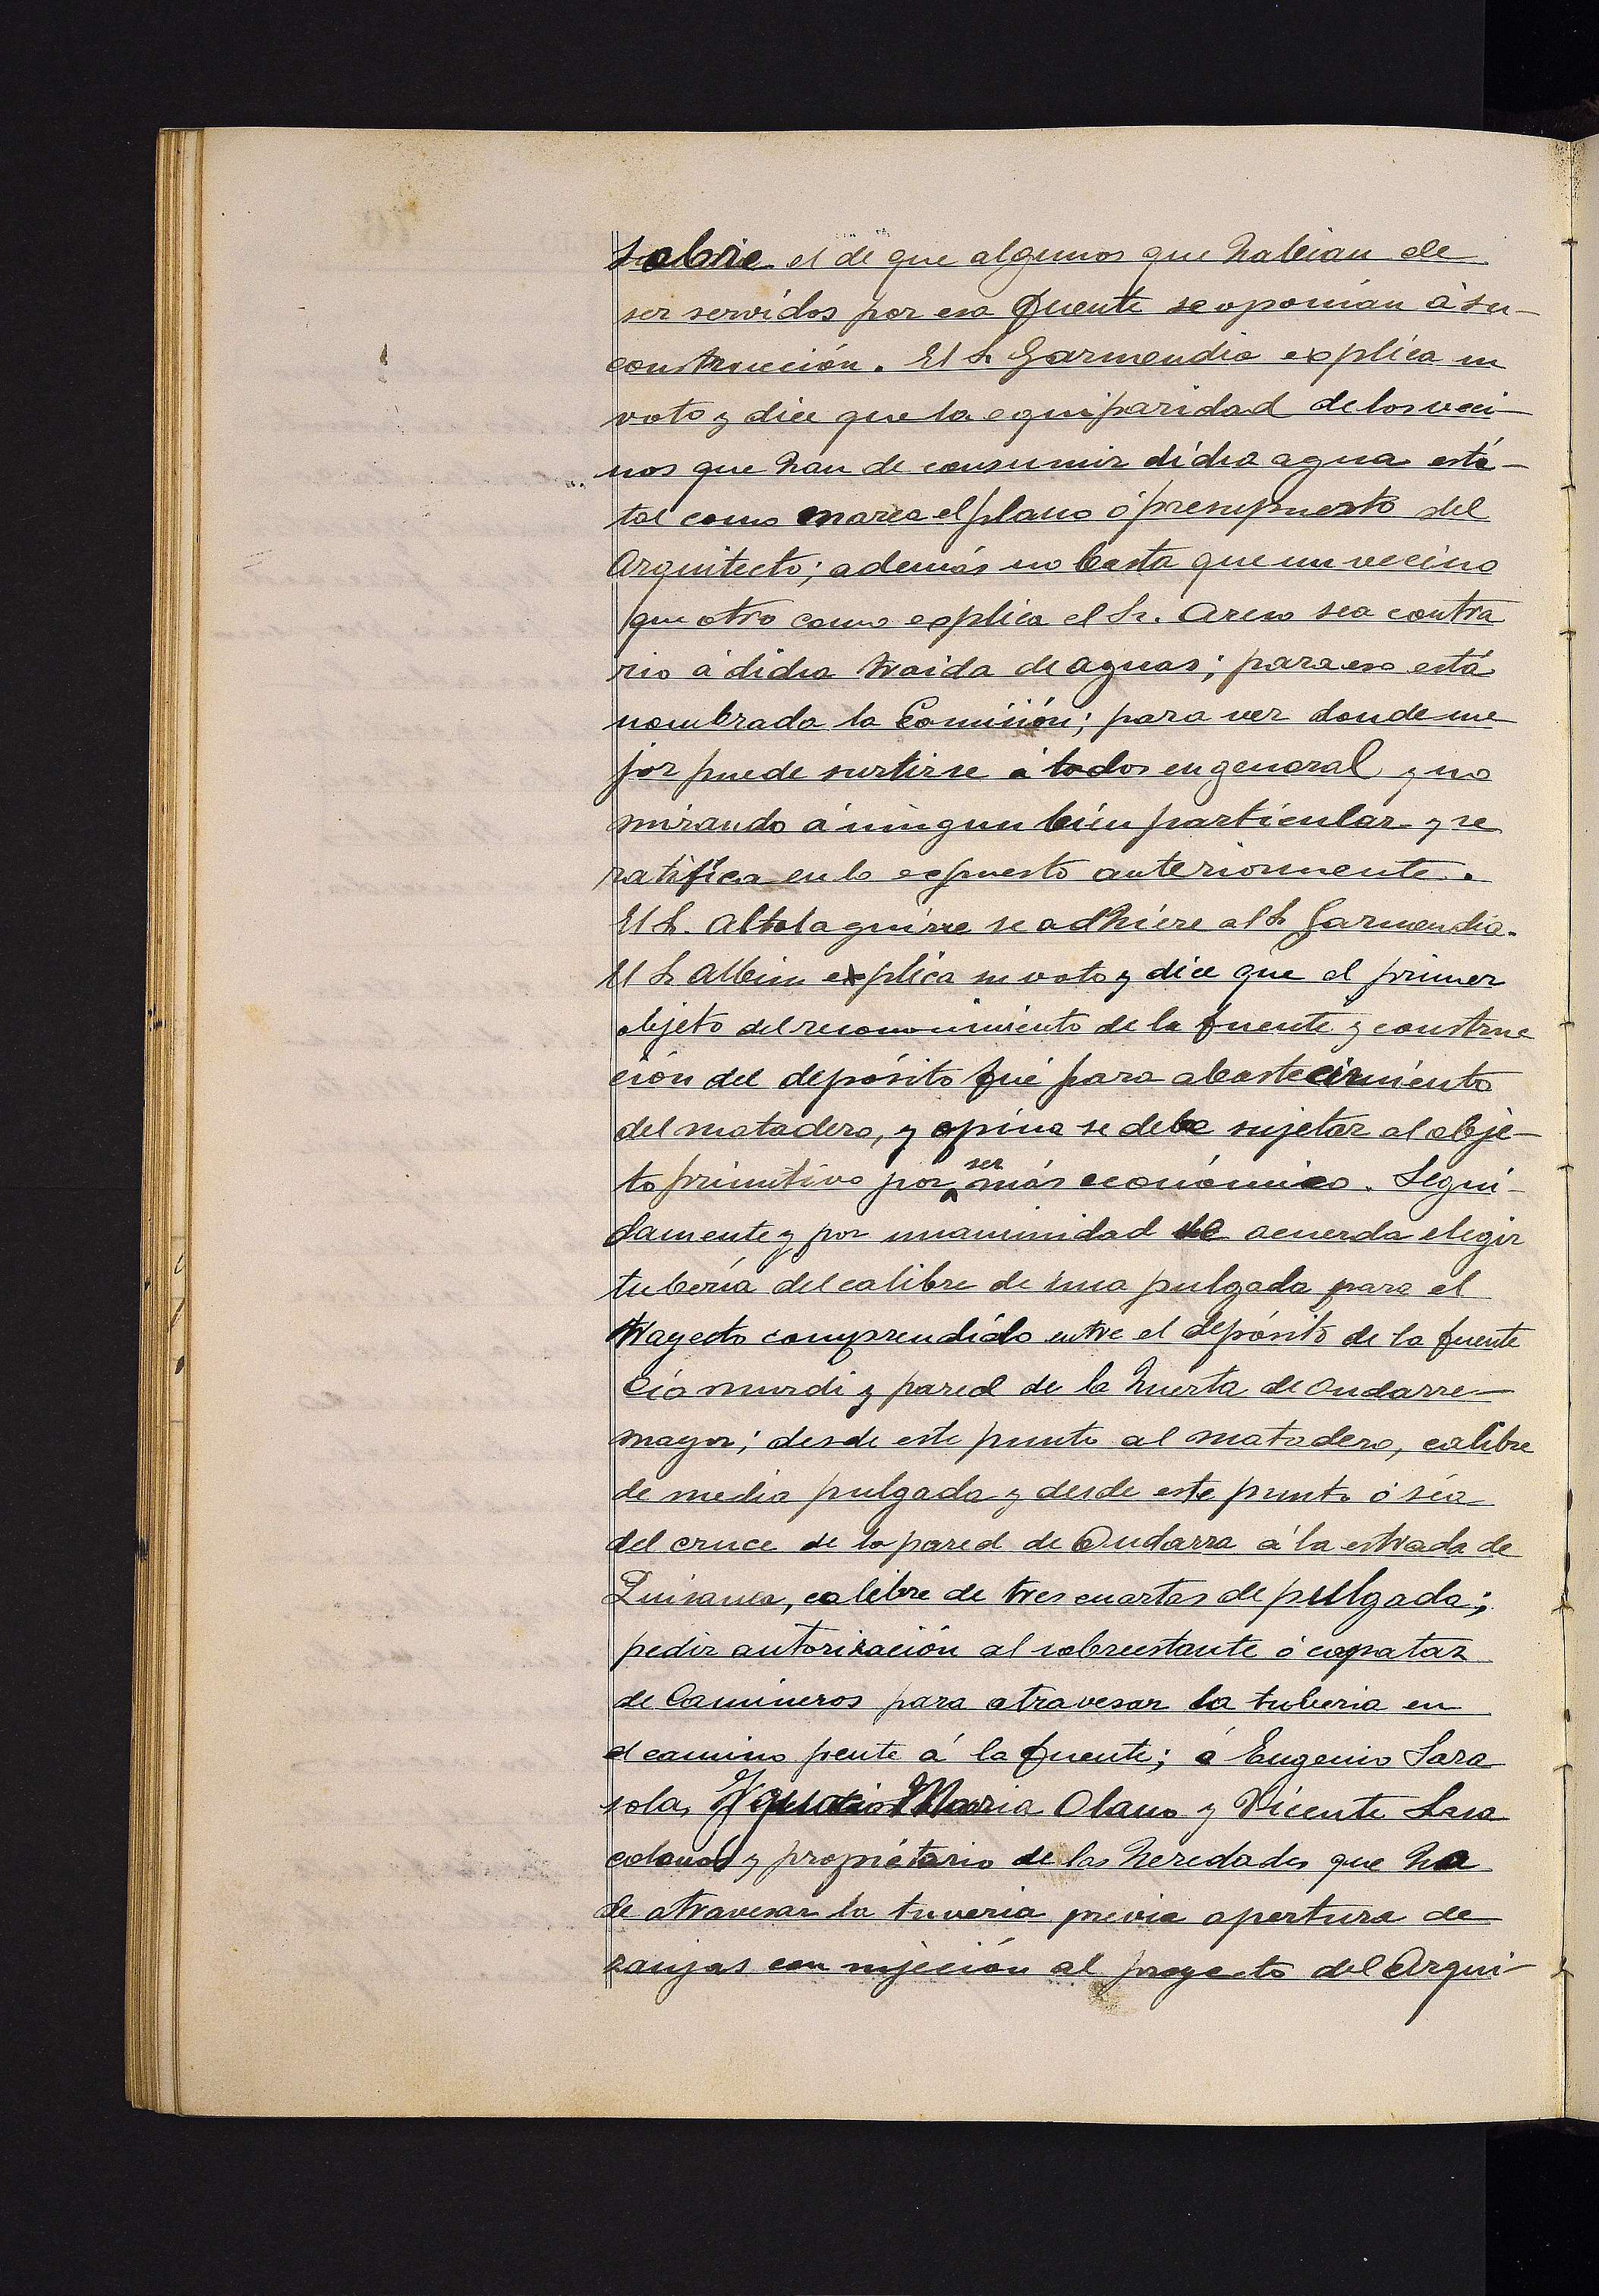 sobre el de que algunos que habian de
ser servidos por esa fuente se oponian á su
construcción. El Sr Garmendia explica su
voto y dice que la equiparidad de los veci-
nos que han de consumir dicha agua está
tal como marca el plano ó presupuesto del
Arquitecto; además no basta que un vecino
que otro como explica el Sr. Areso sea contra
rio á dicha traida de aguas; para eso está
nombrada la Comisión; para ver donde me
jor puede surtirse á todos en general y no
mirando á ningun bien particular y se
ratifica en lo expuesto anteriormente.
El Sr. Altolaguirre se adhiere al Sr Garmendia.
El Sr Albisu explica su voto y dice que el primer
objeto del reconocimiento de la fuente y construc
ción del depósito fué para abastecimiento
del matadero, y opina se debe sujetar al obje-
to primitivo por ser más económico. Segui-
damente y por unanimidad se acuerda elegir
tubería del calibre de una pulgada para el
trayecto comprendido entre el depósito de la fuente
murdi y pared de la huerta de Ondarre
mayor; desde este punto al matadero, calibre
de media pulgada y desde este punto ó sea
del cruce de la pared de Ondarra á la estrada de
calibre de tres cuartas de pulgada;
pedir autorización al sobrestante ó capataz
de Camineros para atravesar la tuberia en
el camino frente á la fuente; á Eugenio Sara
sola, Ygnacio Maria Olano y Vicente Lasa
colonos y propietario de las heredades que ha
de atravesar la tuveria previa apertura de
zanjas con sujeción al proyecto del Arqui-